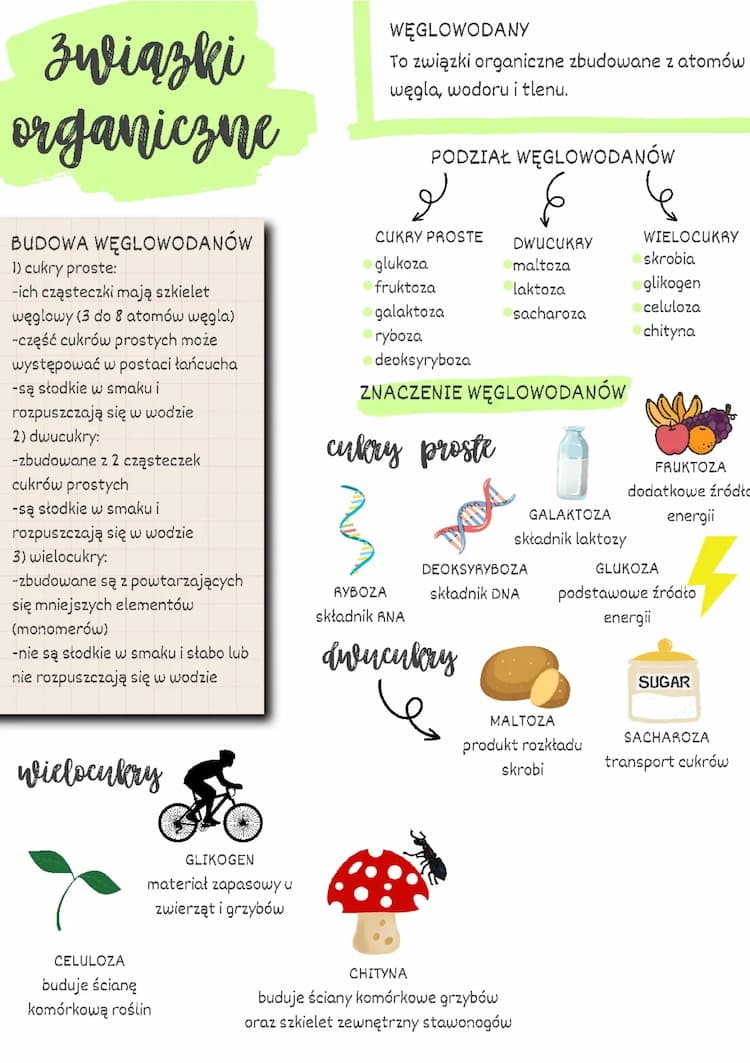 Związki
organiczne
WĘGLOWODANY
To związki organiczne zbudowane z atomów
węgla, wodoru i tlenu.
PODZIAŁ WĘGLOWODANÓW
CUKRY PROSTE
glukoza
fruktoza
galaktoza
ryboza
deoksyryboza
DWUCUKRY
maltoza
laktoza
sacharoza
WIELOCUKRY
skrobia
glikogen
celuloza
chityna
BUDOWA WĘGLOWODANÓW
1) cukry proste:
-ich cząsteczki mają szkielet
węglowy (3 do 8 atomów węgla)
-część cukrów prostych może
występować w postaci łańcucha
-są słodkie w smaku i
rozpuszczają się w wodzie
2) dwucukry:
-zbudowane z 2 cząsteczek
cukrów prostych
-są słodkie w smaku i
rozpuszczają się w wodzie
3) wielocukry:
-zbudowane są z powtarzających
się mniejszych elementów
(monomerów)
-nie są słodkie w smaku i słabo lub
nie rozpuszczają się w wodzie
ZNACZENIE WĘGLOWODANÓW
cukry proste
RYBOZA
składnik RNA
DEOKSYRYBOZA
składnik DNA
GALAKTOZA
składnik laktozy
FRUKTOZA
dodatkowe źródło
energii
GLUKOZA
podstawowe źródło
energii
dwucukry
MALTOZA
produkt rozkładu
skrobi
SUGAR
SACHAROZA
transport cukrów
wielocukry
GLIKOGEN
materiał zapasowy u
zwierząt i grzybów
CELULOZA
buduje ścianę
komórkową roślin
CHITYNA
buduje ściany komórkowe grzybów
oraz szkielet zewnętrzny stawonogów